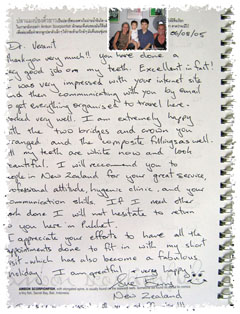 06/08/05
Dr. Veasnil
Thank you very much!! You have done a
very good job on my teeth. Excellent in fact!
I was very impressed with your internet site
and then communicating with you by email
to get everything organised to travel here.
worked very well. I am extremely happy
with the two bridges and crown you
arranged and the composite fillings as well.
teeth are white now and look
beautiful. I will recommend you to
people in New Zealand for your great service,
professional attitude, hygenic clinic, and your
communication skills. If I need other
work done I will not hesitate to return
to you here in Phuket.
I appreciate your efforts to have all the
appointments done to fit in with my short
visit - which has also become a fabulous
holiday. I am greatful + very happy
Sue
New Zealand